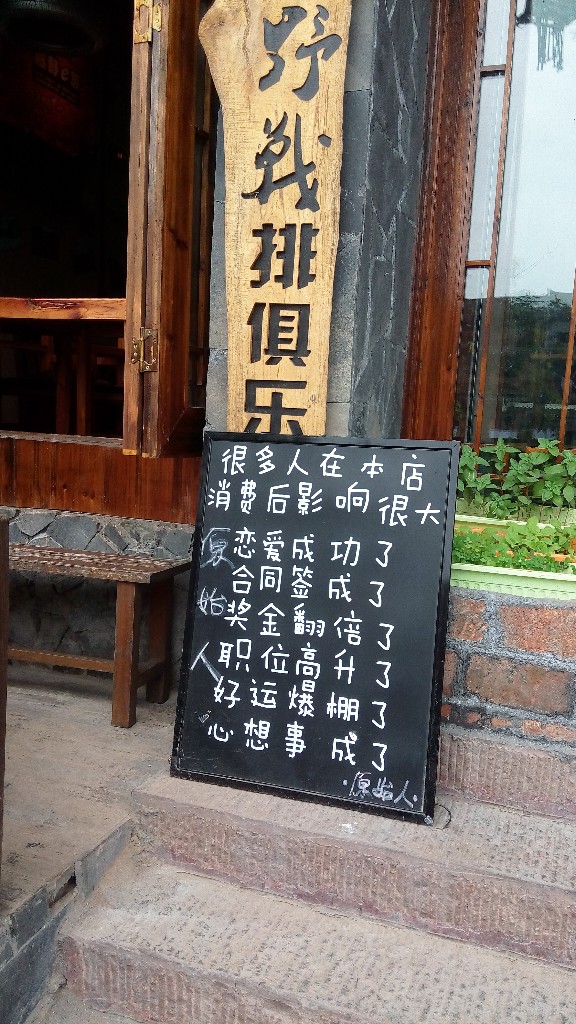 野战排俱乐
很多人在本店
消费后影响很大
恋爱成功了
合同签成了
奖金翻倍了
职位高升了
好运爆棚了
心想事成了
原始人
·原始人·